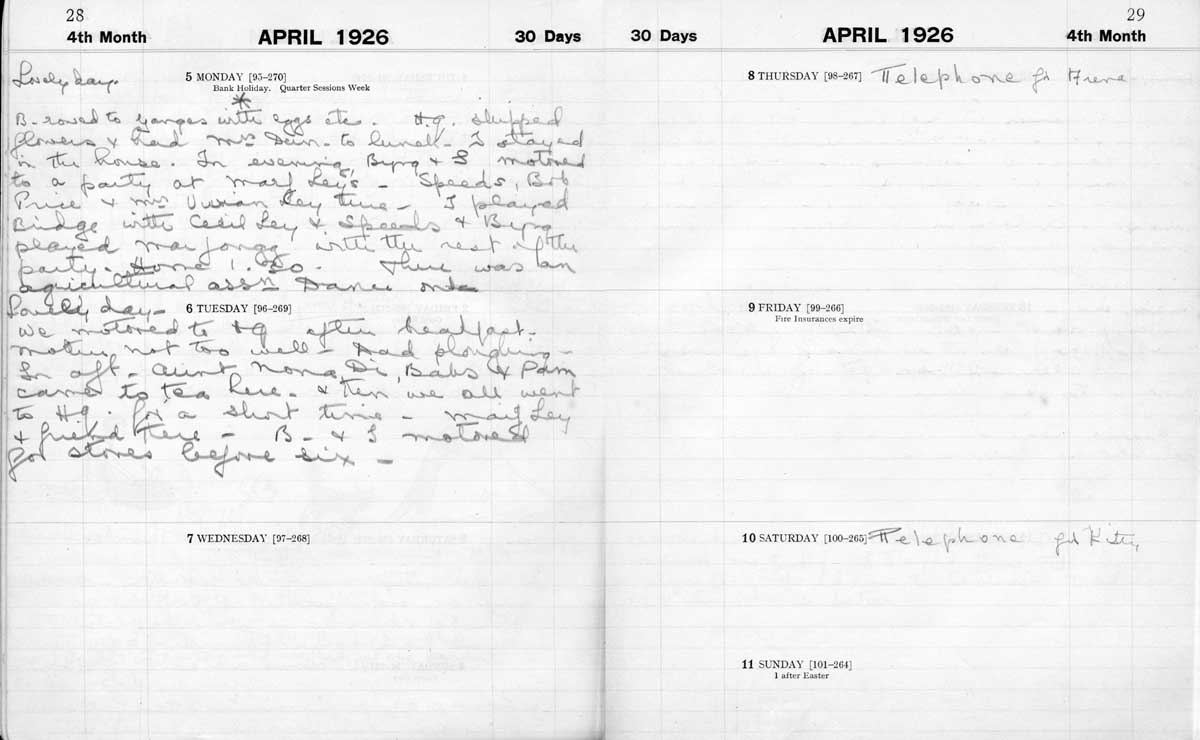 28
4th Month APRIL 1926 30 Days
Lovely day.
5 MONDAY [95-270]
Bank Holiday. Quarter Sessions Week
B- rowed to with eggs etc. H.q. shipped
flowers & had Mrs to lunch - I stayed
in the house. In evening, Byng & I motored
to a party at Mary Ley's - Speeds, Bob
Price & Mrs Vivian Ley there - I played
Bridge with Cecil Ley & Speeds & Byng
played Marjongg with the rest of the
party. Home 1.30. There was an
agricultural assn Dance on
Lovely day -
6 TUESDAY [96-269]
We motored to Hq after breakfast -
Mother not too well - Had ploughing -
In aft. Aunt Nona, Di, Babs & Pam
came to tea here - & then we all went
to Hq. for a short time - Mary Ley
& friend there - B - & I motored
for stores before six -
7 WEDNESDAY [97-268]
29
30 Days APRIL 1926 4th Month
8 THURSDAY [98-267] Telephone
9 FRIDAY [99-266]
Fire Insurances expire
10 SATURDAY [100-265] Telephone Kitty
11 SUNDAY [101-264]
1 after Easter